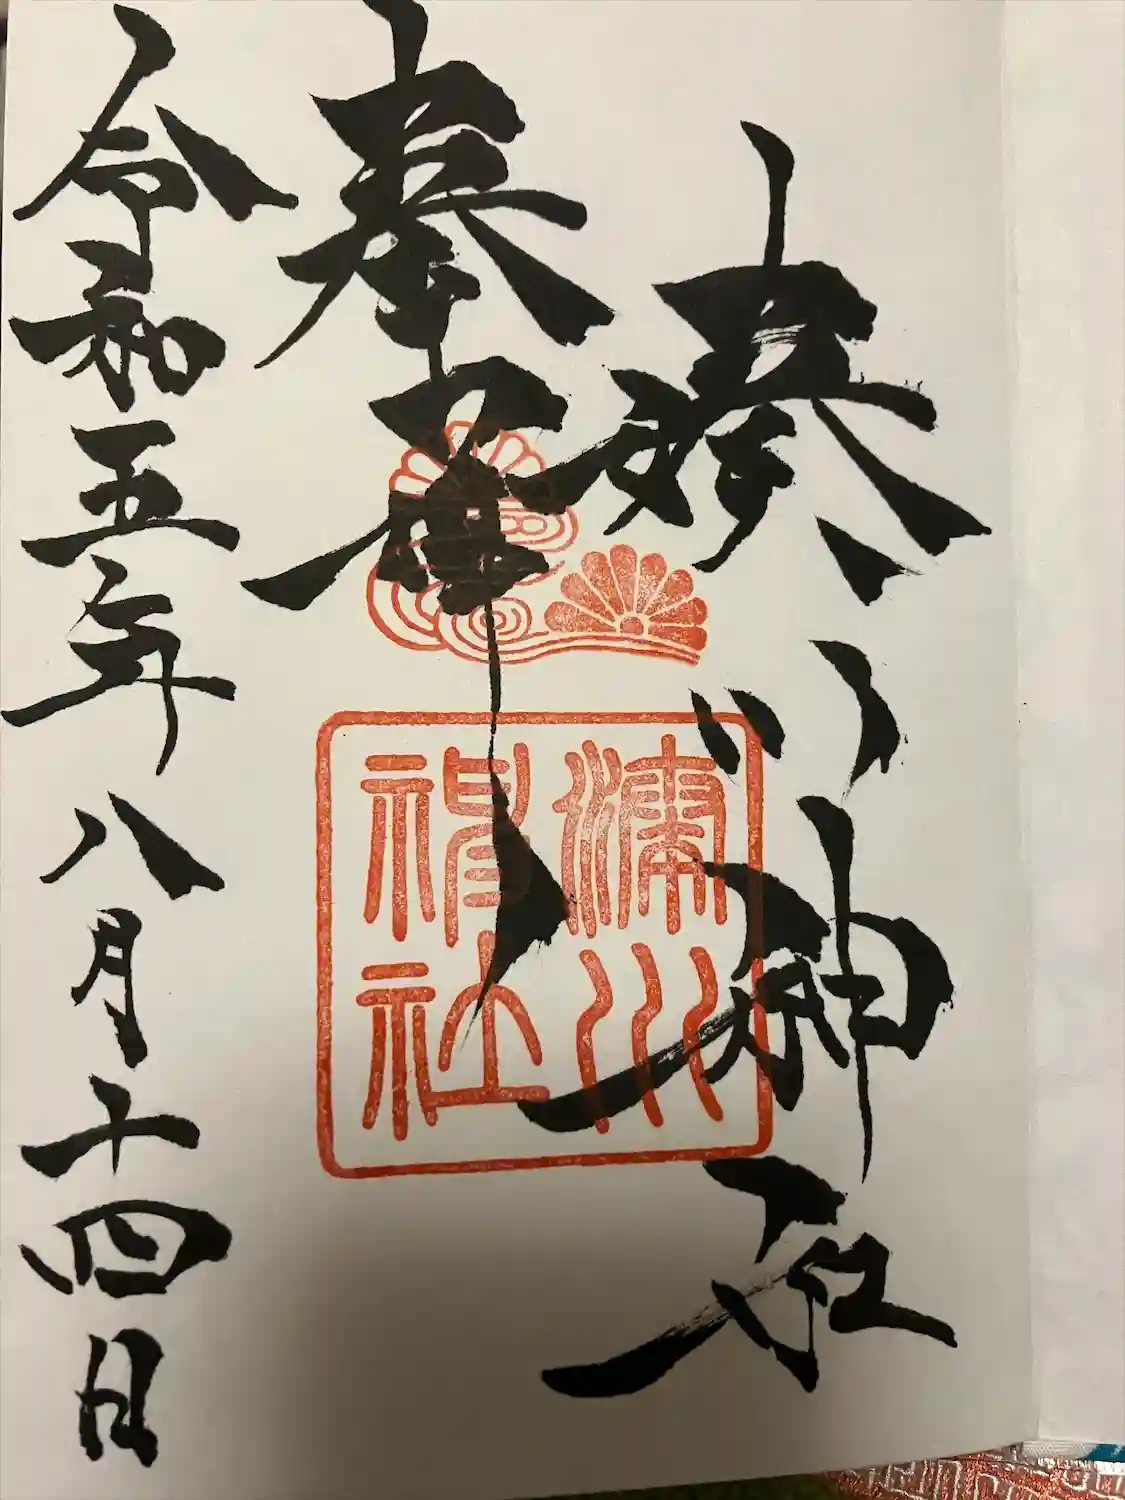 湊川神社
奉拝
令和五年八月十四日
湊川
神社